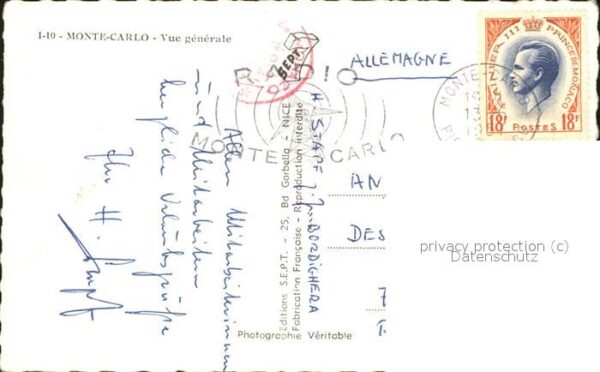 I-10 - MONTE-CARLO - Vue générale
Allen Mitarbeiterinnen
und Mitarbeitern
herzliche Urlaubsgrüße
Ihr H. Stapf
Editions S.E.P.T. - 25, Bd Gorbella - NICE
Fabrication Française - Reproduction Interdite
Photographie Véritable
H STAPF
BORDIGHERA
SEPT
RADIO
MONTE CARLO
MONTE-
ALLEMAGNE
AN
DES
RAINIER III PRINCE DE MONACO
18F POSTES 18F
privacy protection (c)
Datenschutz